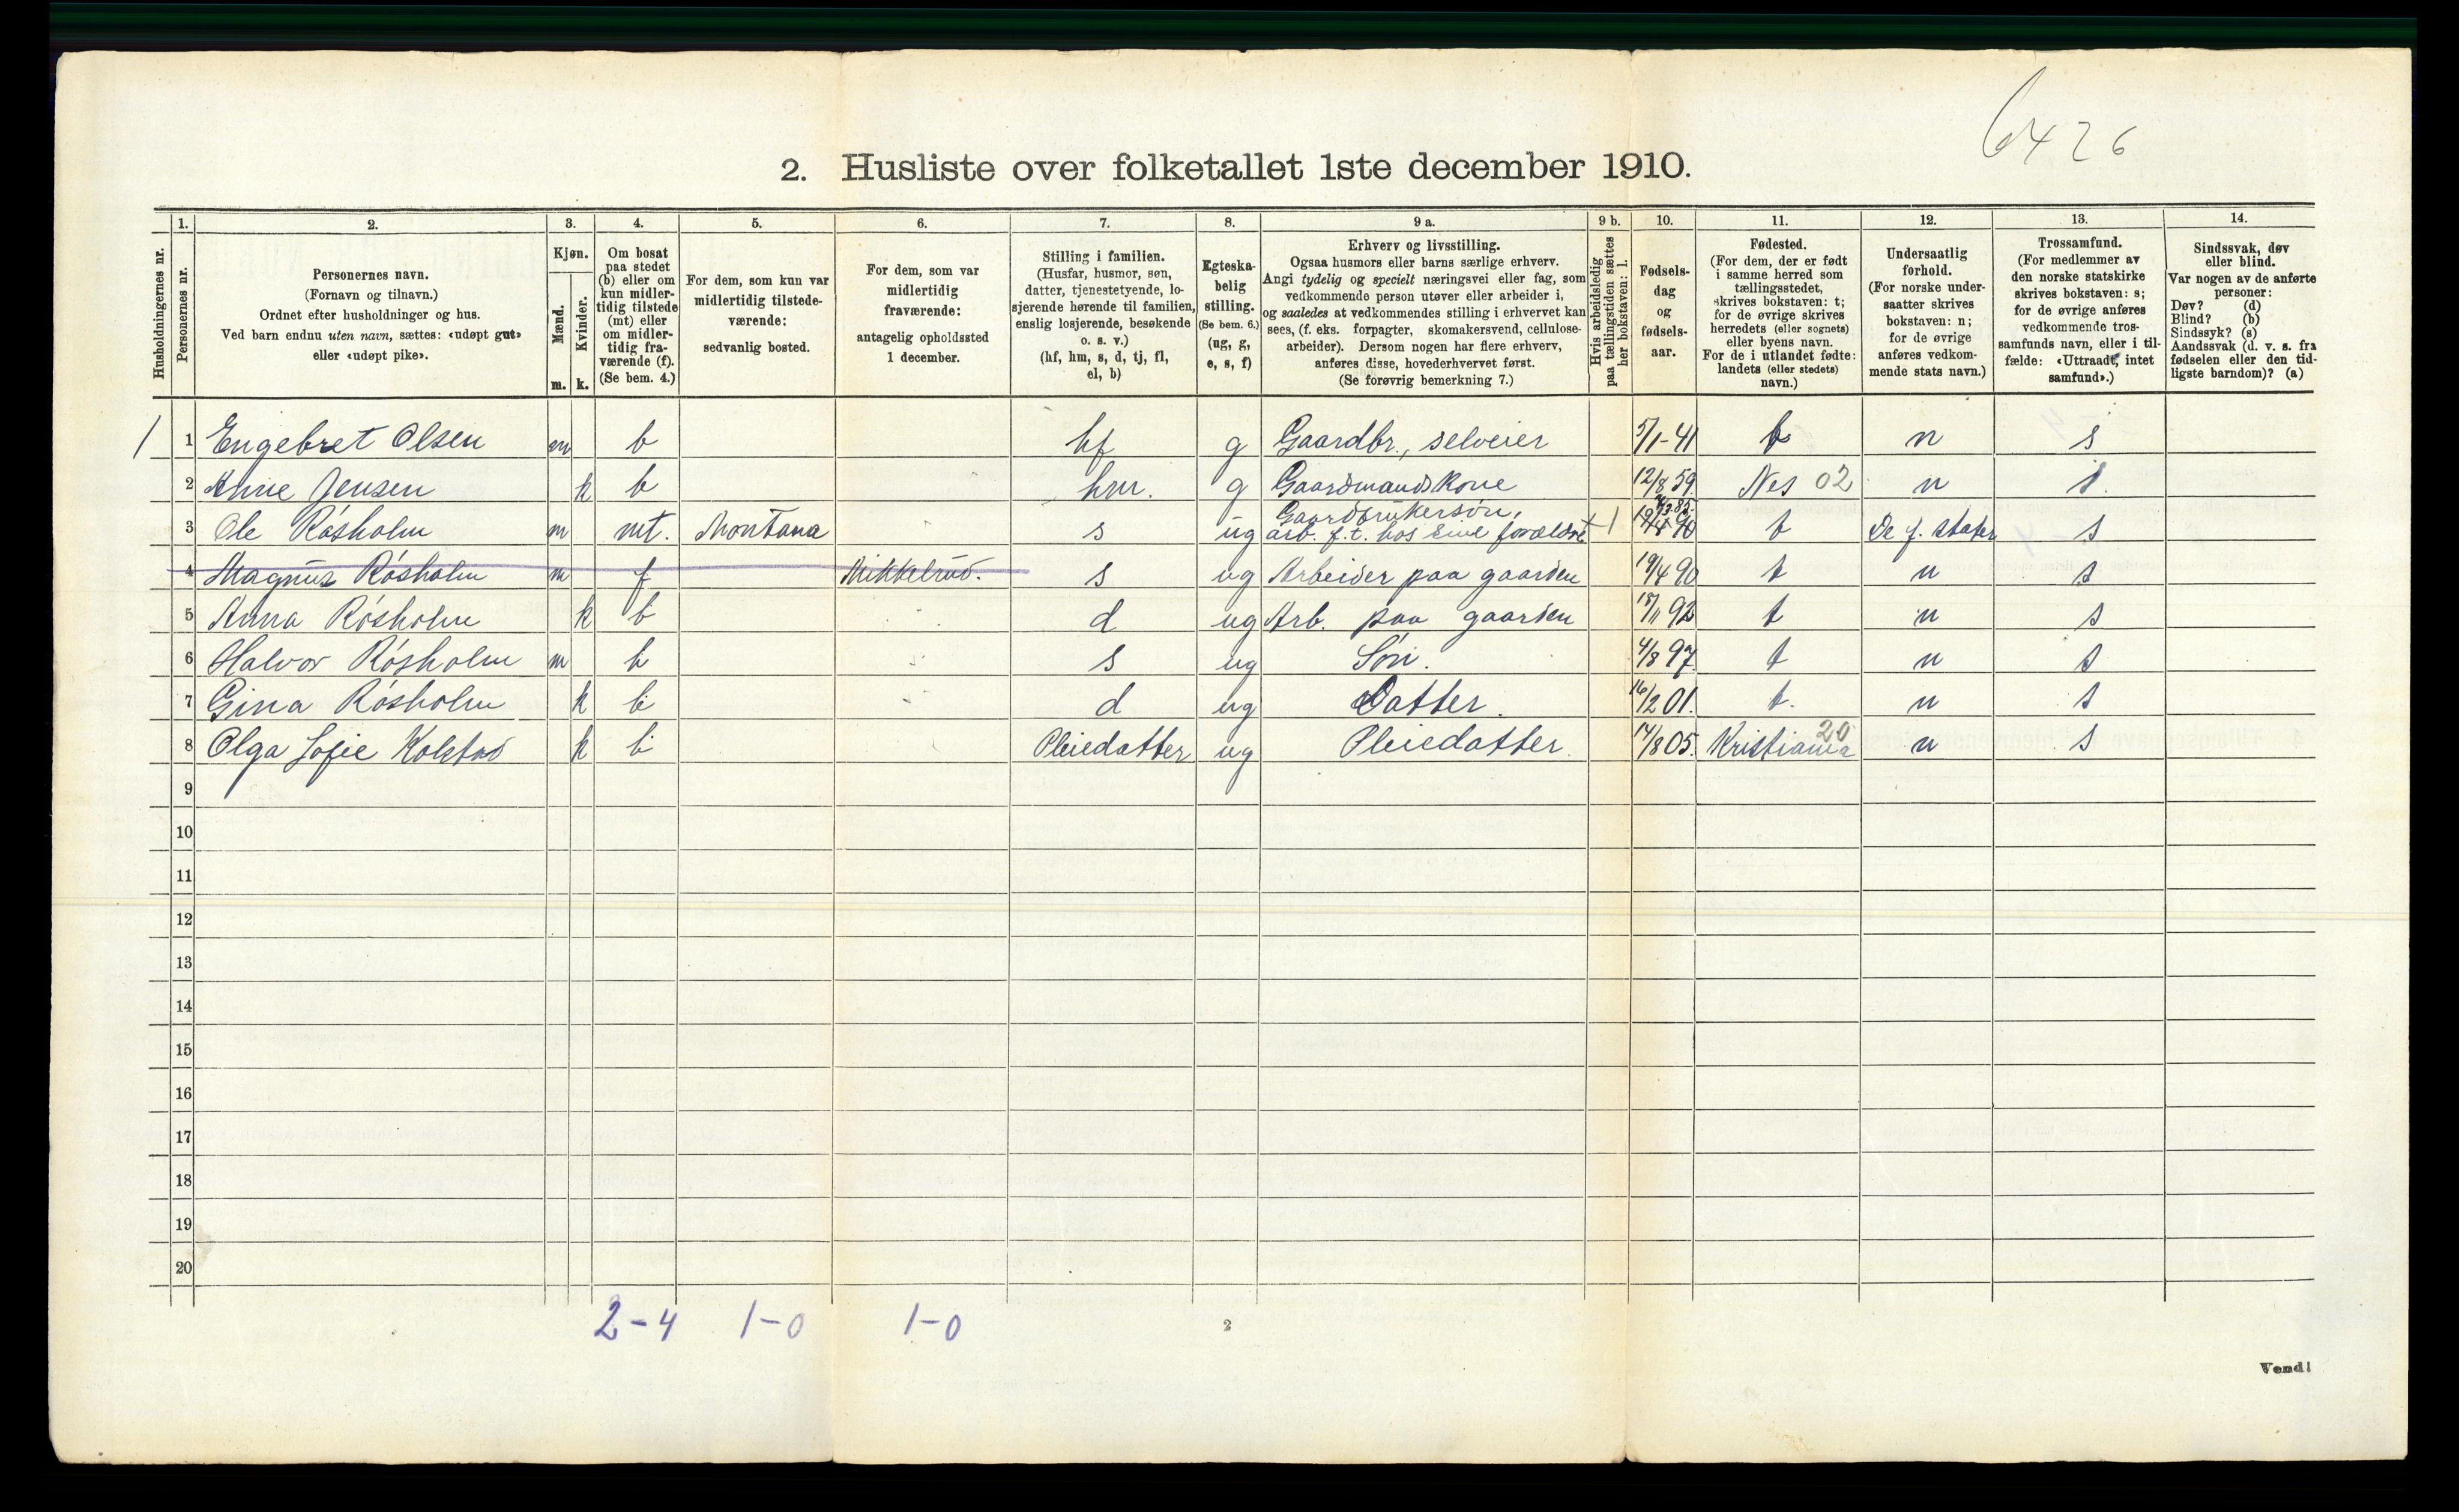 6426
2. Husliste over folketallet 1ste december 1910.
Husholdningernes nr.
1.
Personernes nr.
2.
Personernes navn.
(Fornavn og tilnavn.)
Ordnet efter husholdninger og hus.
Ved barn endnu uten navn, sættes: «udøpt gut»
eller «udøpt pike».
3.
Kjøn.
Mænd.
Kvinder.
m. k.
4.
Om bosat
paa stedet
(b) eller om
kun midler-
tidig tilstede
(mt) eller
om midler-
tidig fra-
værende (f).
(Se bem. 4.)
5.
For dem, som kun var
midlertidig tilstede-
værende:
sedvanlig bosted.
6.
For dem, som var
midlertidig
fraværende:
antagelig opholdssted
1 december.
7.
Stilling i familien.
(Husfar, husmor, søn,
datter, tjenestetyende, lo-
sjerende hørende til familien,
enslig losjerende, besøkende
o. s. v.)
(hf, hm, s, d, tj, fl,
el, b)
8.
Egteska-
belig
stilling.
(Se bem. 6.)
(ug, g,
e, s, f)
9 a.
Erhverv og livsstilling.
Ogsaa husmors eller barns særlige erhverv.
Angi tydelig og specielt næringsvei eller fag, som
vedkommende person utøver eller arbeider i,
og saaledes at vedkommendes stilling i erhvervet kan
sees, (f. eks. forpagter, skomakersvend, cellulose-
arbeider). Dersom nogen har flere erhverv,
anføres disse, hovederhvervet først.
(Se forøvrig bemerkning 7.)
9 b.
Hvis arbeidsledig
paa tællingstiden sættes
her bokstaven: l.
10.
Fødsels-
dag
og
fødsels-
aar.
11.
Fødested.
(For dem, der er født
i samme herred som
tællingsstedet,
skrives bokstaven: t;
for de øvrige skrives
herredets (eller sognets)
eller byens navn.
For de i utlandet fødte:
landets (eller stedets)
navn.)
12.
Undersaatlig
forhold.
(For norske under-
saatter skrives
bokstaven: n;
for de øvrige
anføres vedkom-
mende stats navn.)
13.
Trossamfund.
(For medlemmer av
den norske statskirke
skrives bokstaven: s;
for de øvrige anføres
vedkommende tros-
samfunds navn, eller i til-
fælde: «Uttraadt, intet
samfund».)
14.
Sindssvak, døv
eller blind.
Var nogen av de anførte
personer:
Døv? (d)
Blind? (b)
Sindssyk? (s)
Aandssvak (d. v. s. fra
fødselen eller den tid-
ligste barndom)? (a)
1 1 Engebret Olsen m b hf g Gaardbr., selveier 5/1-41 t n s
2 Anne Jensen k b hm. g Gaardmandskone 12/8 59. Nes 02 n s.
3 Ole Røsholm m mt. Montana s ug Gaardbrukersøn, arb. f.t. hos sine forældre t De f. stater s
4 Magnus Røsholm m f Mikkelrud. s ug Arbeider paa gaarden 19/4 90 t n s
5 Anna Røsholm k b d ug Arb. paa gaarden 18/11 92 t n s
6 Halvor Røsholm m b s ug Søn. 4/8 97. t n s
7 Gina Røsholm k b d ug Datter. 16/2 01. t. n s
8 Olga Sofie Kolstad k b Pleiedatter ug Pleiedatter. 14/8 05. Kristiania 20 n s
9
10
11
12
13
14
15
16
17
18
19
20
2-4 1-0 1-0
2
Vend!